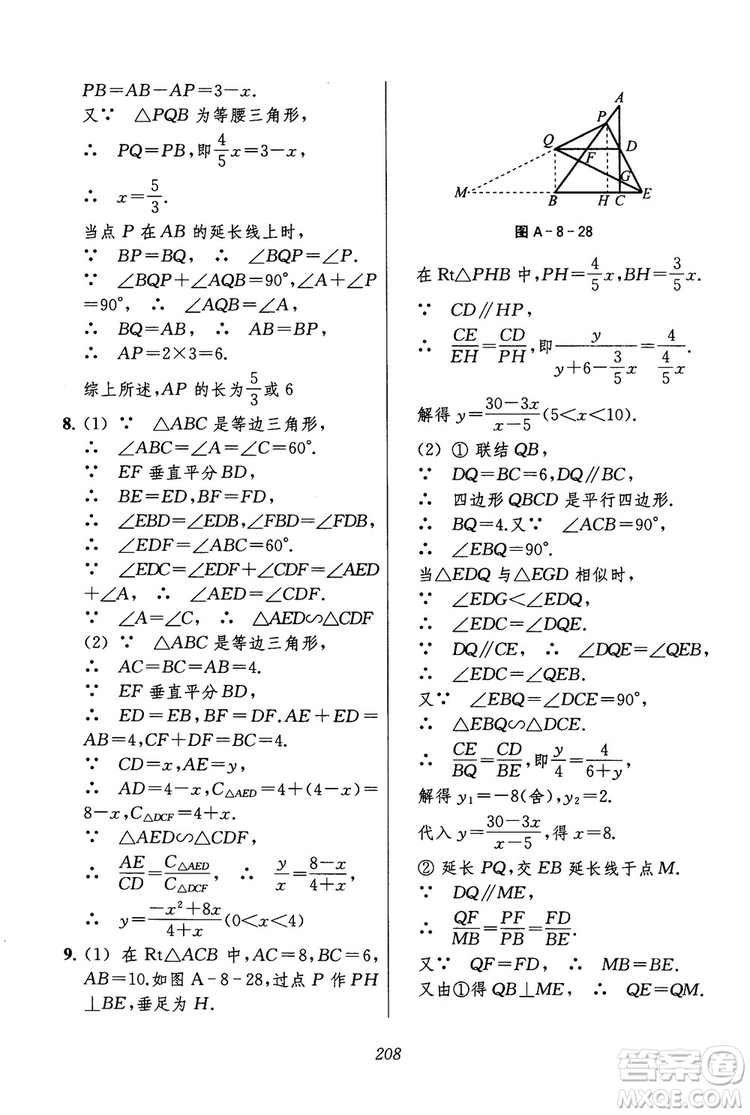 PB=AB－AP=3－x.
又∵ △PQB 为等腰三角形,
∴ PQ=PB,即4/5x=3－x,
∴ x=5/3.
当点 P 在 AB 的延长线上时,
∵ BP=BQ, ∴ ∠BQP=∠P.
∵ ∠BQP+∠AQB=90°,∠A+∠P
=90°, ∴ ∠AQB=∠A,
∴ BQ=AB, ∴ AB=BP,
∴ AP=2×3=6.
综上所述,AP 的长为5/3或 6
8. (1) ∵ △ABC 是等边三角形,
∴ ∠ABC=∠A=∠C=60°.
∵ EF 垂直平分 BD,
∴ BE=ED,BF=FD,
∴ ∠EBD=∠EDB,∠FBD=∠FDB,
∴ ∠EDF=∠ABC=60°.
∵ ∠EDC=∠EDF+∠CDF=∠AED
+∠A, ∴ ∠AED=∠CDF.
∵ ∠A=∠C, ∴ △AED∽△CDF
(2) ∵ △ABC 是等边三角形,
∴ AC=BC=AB=4.
∵ EF 垂直平分 BD,
∴ ED=EB,BF=DF.AE+ED=
AB=4,CF+DF=BC=4.
∵ CD=x,AE=y,
∴ AD=4－x,C△AED=4+(4－x)=
8－x,C△DCF=4+x.
∵ △AED∽△CDF,
∴ AE/CD=C△AED/C△DCF ∴ y/x=8－x/4+x,
∴ y=－x²+8x/4+x(0<x<4)
9. (1) 在 Rt△ACB 中,AC=8,BC=6,
AB=10.如图 A－8－28,过点 P 作 PH
⊥BE,垂足为 H.
A
P
Q
D
F
G
M
B
H
C
E
图 A－8－28
在 Rt△PHB 中,PH=4/5x,BH=3/5x.
∵ CD∥HP,
∴ CE/EH=CD/PH,即y/(y+6－3/5x)=4/(4/5x).
解得 y=30－3x/x－5(5<x<10).
(2) ① 联结 QB,
∵ DQ=BC=6,DQ∥BC,
∴ 四边形 QBCD 是平行四边形.
∴ BQ=4.又∵ ∠ACB=90°,
∴ ∠EBQ=90°.
当△EDQ 与△EGD 相似时,
∵ ∠EDG<∠EDQ,
∴ ∠EDC=∠DQE.
∵ DQ∥CE, ∴ ∠DQE=∠QEB,
∴ ∠EDC=∠QEB.
又∵ ∠EBQ=∠DCE=90°,
∴ △EBQ∽△DCE.
∴ CE/BQ=CD/BE,即y/4=4/6+y,
解得 y₁=－8(舍),y₂=2.
代入 y=30－3x/x－5,得 x=8.
② 延长 PQ,交 EB 延长线于点 M.
∵ DQ∥ME,
∴ QF/MB=PF/PB=FD/BE.
又∵ QF=FD, ∴ MB=BE.
又由①得 QB⊥ME, ∴ QE=QM.
208
答案圈
MXQE.COM